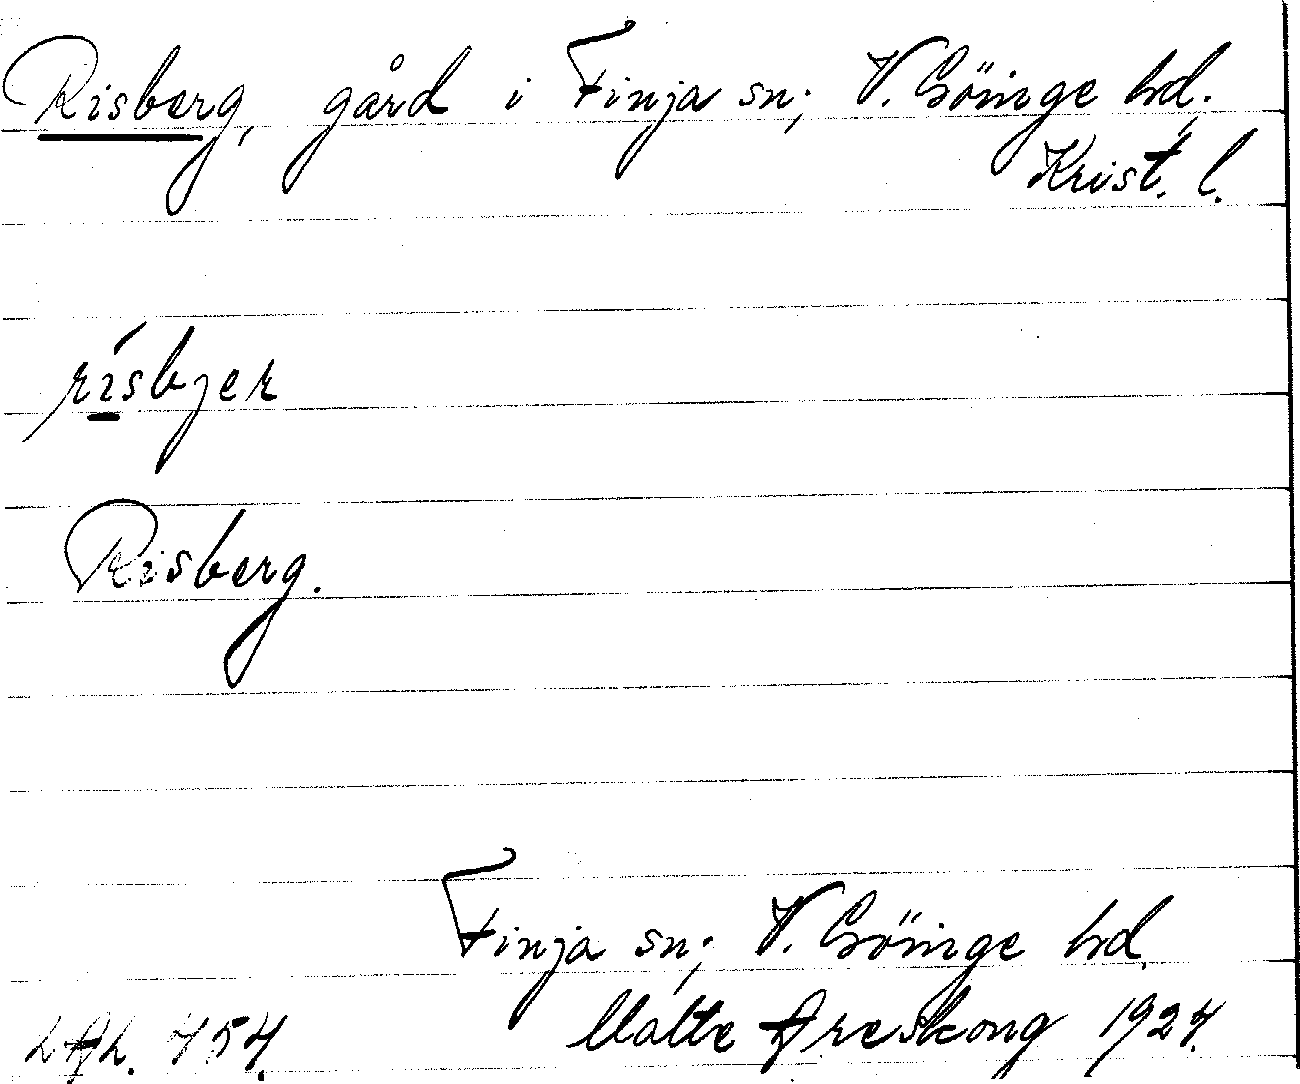 Risberg, gård i Finja sn; V. Göinge hd.
Krist. l.
rísbjer
Risberg.
Finja sn; V. Göinge hd.
Malte Areskoug 1924.
LAL. 454.